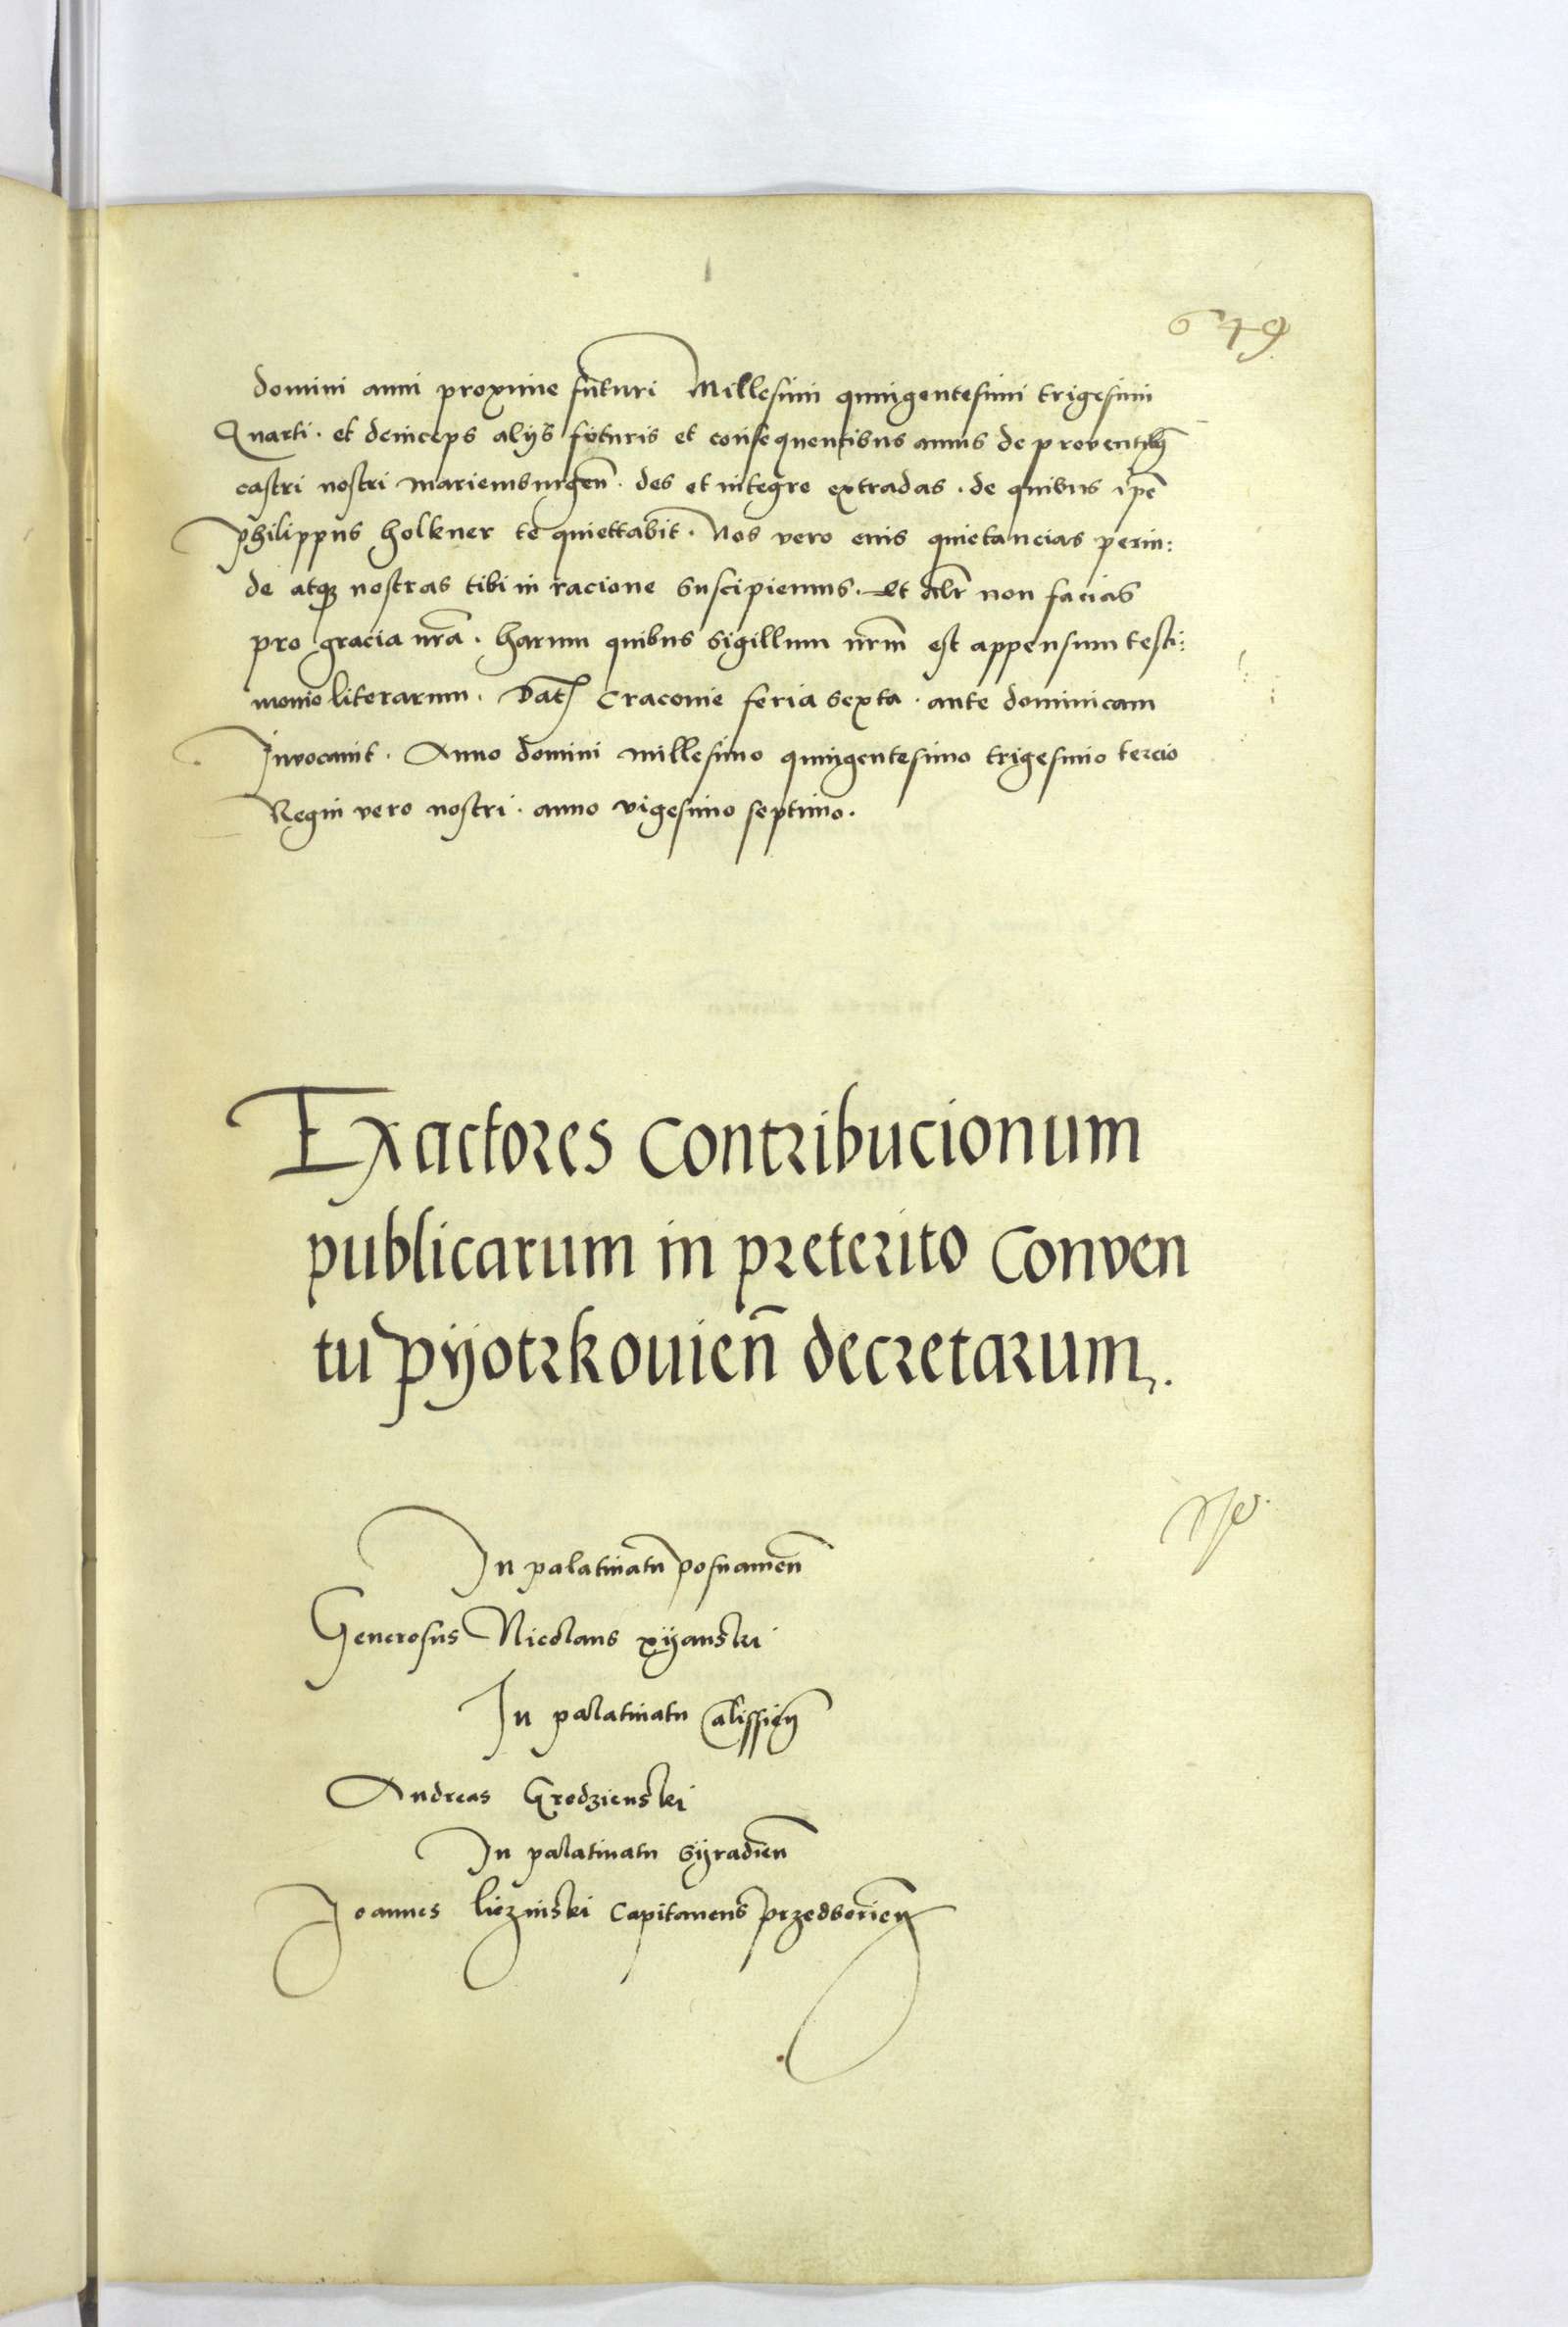 649
domini anni proxime futuri Millesimi quingentesimi trigesimi
Quarti. et deinceps alijs futuris et consequentibus annis de proventibꝫ
castri nostri mariemburgen̄. des et integre extradas. de quibus ip̄e
Philippus holkner te quiettabit. Nos vero eius quietancias perin:
de atqꝫ nostras tibi in racione suscipiemus. Et al̄r non facias
pro gracia nr̄a. harum quibus sigillum nr̄m est appensum testi:
monio literarum. Dat̄ Cracovie feria sexta. ante dominicam
Invocavit. Anno domini millesimo quingentesimo trigesimo tercio
Regni vero nostri. anno vigesimo septimo.
Exactores Contribucionum
publicarum in preterito Conven
tu pyotrkovien̄ decretarum.
In palatinatu posnanien̄
Generosus Nicolaus
In palatinatu Calissien̄
Andreas Grodzienski
In palatinatu Syradien̄
Joannes liczinski Capitaneus przedborien̄